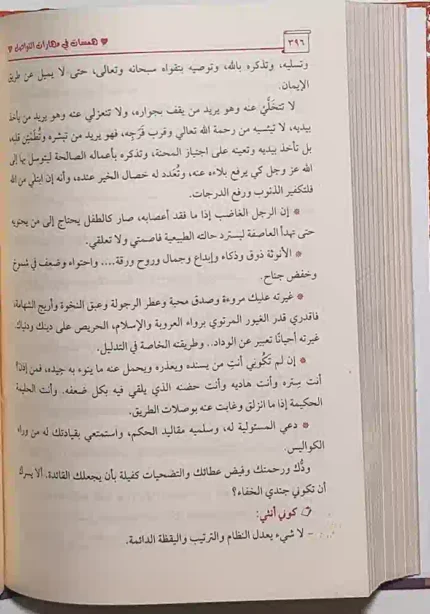 ٣٩٦ ♥ همسات في مهارات التواصل ♥
وتسليه، وتذكره بالله، وتوصيه بتقواه سبحانه وتعالى، حتى لا يميل عن طريق
الإيمان.
لا تتخلَّيْ عنه وهو يريد من يقف بجواره، ولا تنعزلي عنه وهو يريد من يأخذ
بيديه، لا تيئسيه من رحمة الله تعالى وقرب فَرَجِه، فهو يريد من تبشره وتُطَمْئِن قلبه،
بل تأخذ بيديه وتعينه على اجتياز المحنة، وتذكره بأعماله الصالحة ليتوسل بها إلى
الله عز وجل كي يرفع بلاءه عنه، وتُعَدد له خصال الخير عنده، وأنه إن ابتلي من الله
فلتكفير الذنوب ورفع الدرجات.
* إن الرجل الغاضب إذا ما فقد أعصابه، صار كالطفل يحتاج إلى من يحتويه
حتى تهدأ العاصفة ليسترد حالته الطبيعية فاصمتي ولا تعلقي.
* الأنوثة ذوق وذكاء وإبداع وجمال وروح ورقة.... واحتواء وضعف في شموخ
وخفض جناح.
* غيرته عليك مروءة وصدق محبة وعطر الرجولة وعبق النخوة وأريج الشهامة،
فاقدري قدر الغيور المرتوي برواء العروبة والإسلام، الحريص على دينك ودنياك
غيرته أحيانًا تعبير عن الوداد.. وطريقته الخاصة في التدليل.
* إن لم تَكُوني أنتِ من يسنده ويعذره ويحمل عنه ما ينوء به جيده، فمن إذن؟
أنت سِتره وأنت هاديه وأنت حضنه الذي يلقي فيه بكل ضعفه. وأنت الحليمة
الحكيمة إذا ما انزلق وغابت عنه بوصلات الطريق.
* دعي المسئولية له، وسلميه مقاليد الحكم، واستمتعي بقيادتك له من وراء
الكواليس.
ودُّك ورحمتك وفيض عطائك والتضحيات كفيلة بأن يجعلك القائدة. ألا يسرك
أن تكوني جندي الخفاء؟
كوني أنثى:
– لا شيء يعدل النظام والترتيب واليقظة الدائمة.